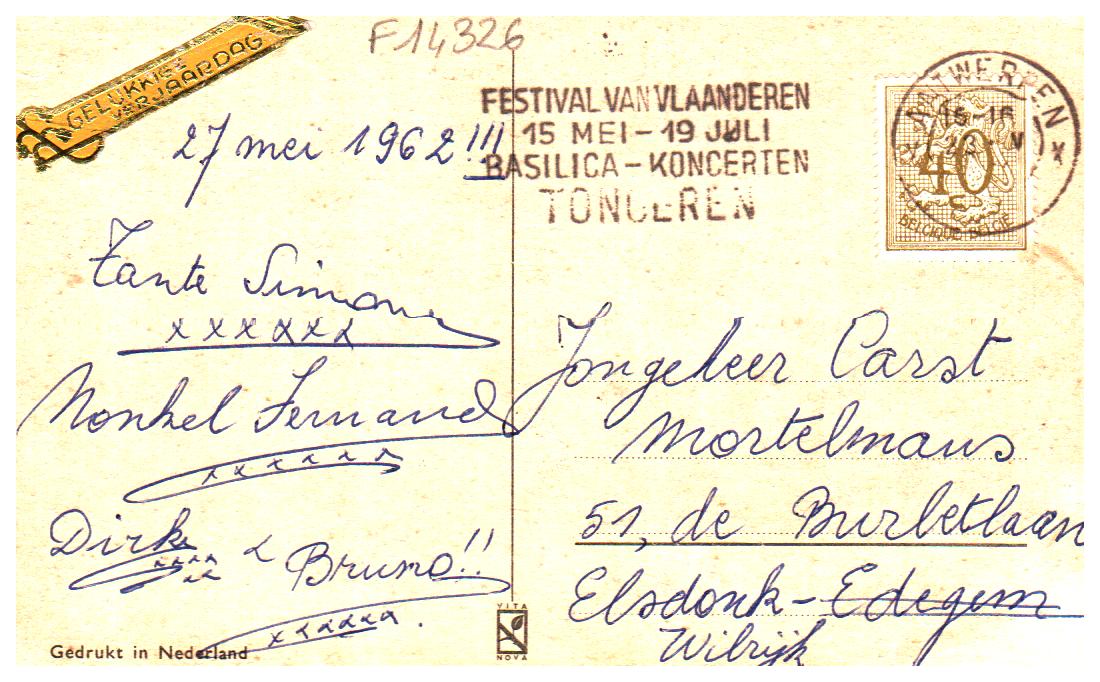 F14326
GELUKKIGE
VERJAARDAG
27 mei 1962!!!
Tante Simone
xxxxxx
Monkel Fernand
xxxxxxx
Dirk & Bruno!!
xxxxxx
xxxxxxx.
Gedrukt in Nederland
VITA
NOVA
FESTIVAL VAN VLAANDEREN
15 MEI - 19 JULI
BASILICA - KONCERTEN
TONGEREN
ANTWERPEN
15-16
V
40
c
BELGIQUE-BELGIË
Jongeheer Carst
Mortelmans
51, de Burbetlaan
Elsdonk - Edegem
Wilrijk